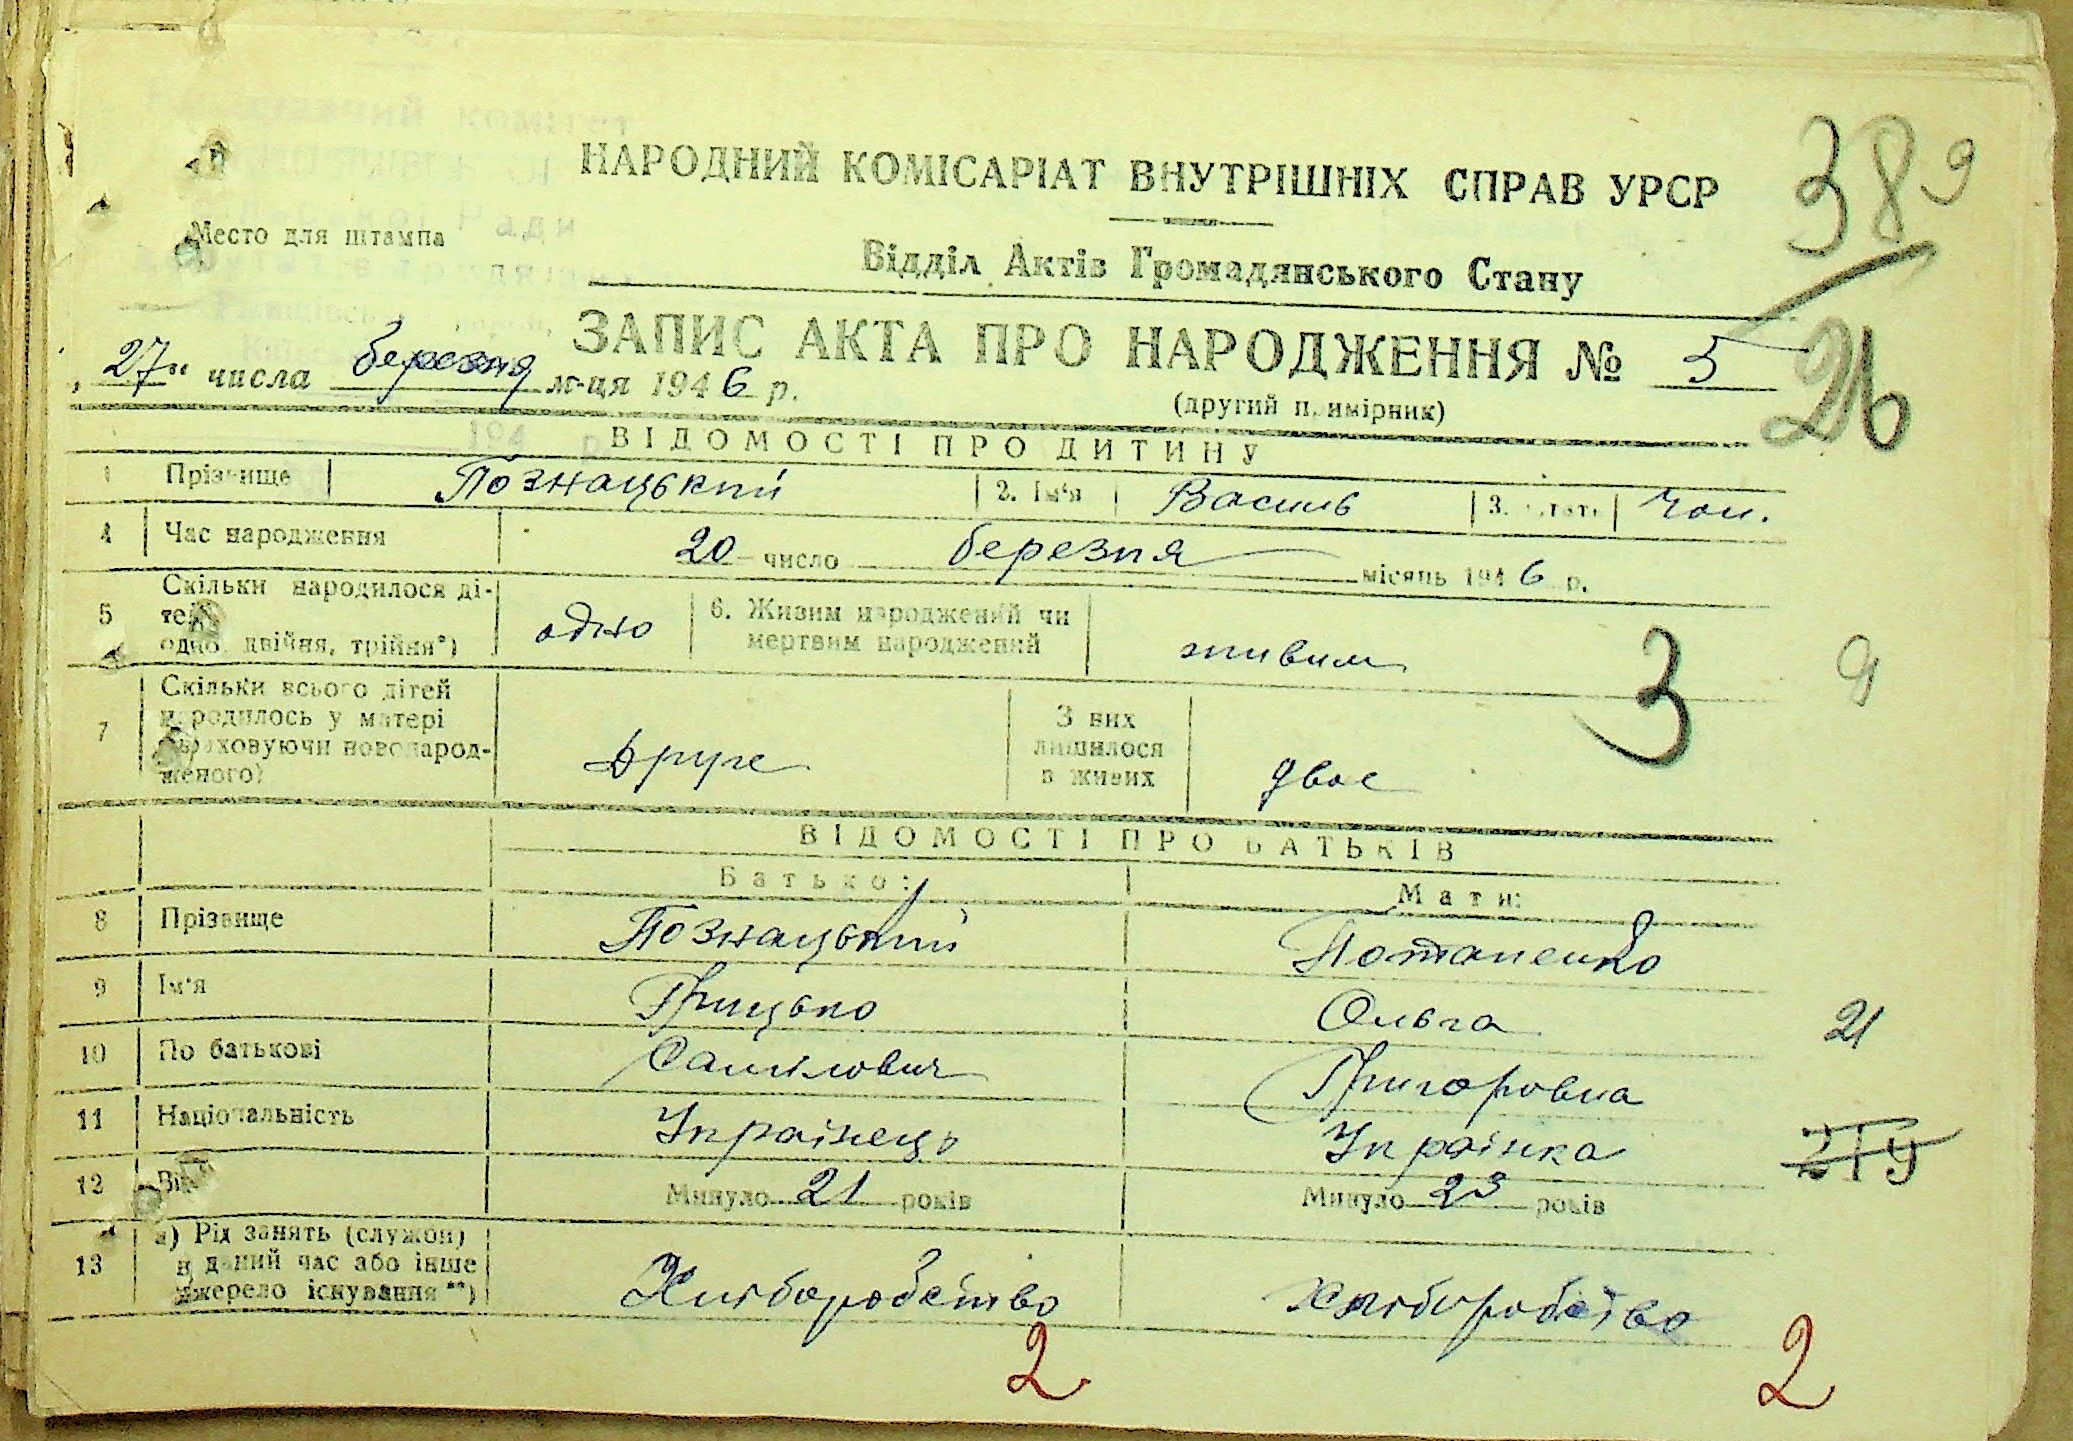 НАРОДНИЙ КОМІСАРІАТ ВНУТРІШНІХ СПРАВ УРСР
389
Место для штампа
Відділ Актів Громадянського Стану
26
ЗАПИС АКТА ПРО НАРОДЖЕННЯ № 5
„27“ числа березня м-ця 1946 р.
(другий примірник)
ВІДОМОСТІ ПРО ДИТИНУ
1 Прізвище Познацький 2. Ім'я Василь 3. Стать Чол.
4 Час народження 20 число березня місяць 1946 р.
5 Скільки народилося дітей одно, двійня, трійня*) одно 6. Живим народжений чи мертвим народжений живим
3
9
7 Скільки всього дітей народилось у матері (враховуючи новонародженого) друге З них лишилося в живих двое
ВІДОМОСТІ ПРО БАТЬКІВ
Батько: Мати:
8 Прізвище Познацький Потапенко
9 Ім'я Грицько Ольга
21
10 По батькові Самілович Григоровна
11 Національність Українець Українка
219
12 Вік Минуло 21 років Минуло 23 років
13 а) Рід занять (служби) в даний час або інше джерело існування**) Хліборобство Хліборобство
2 2